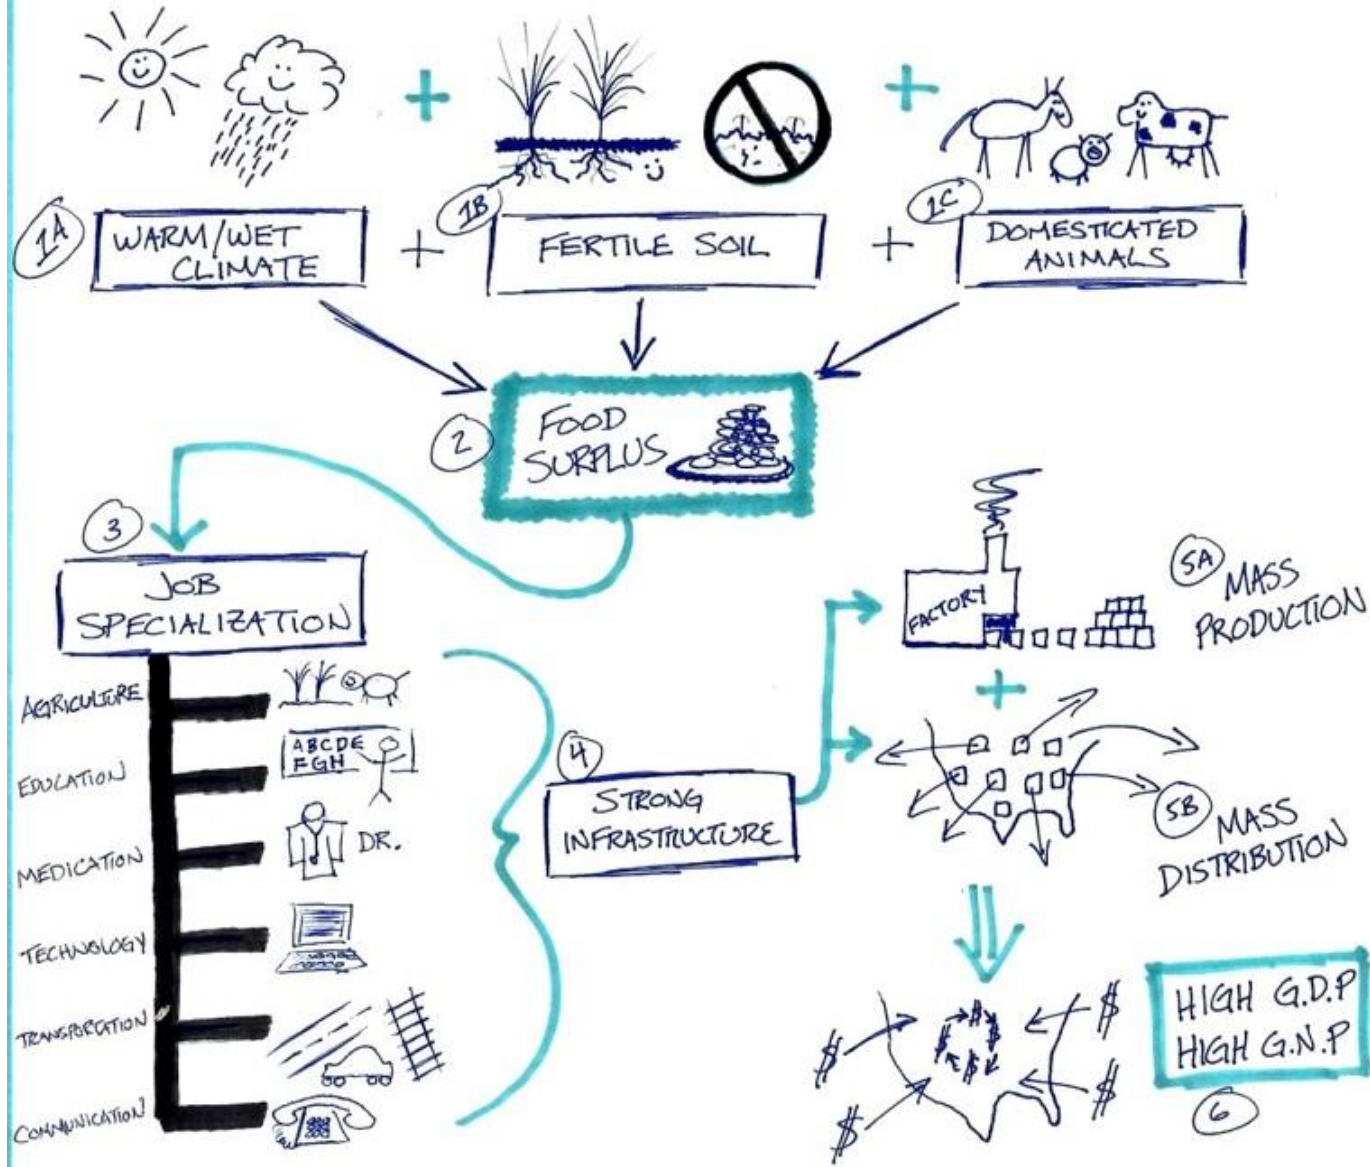 1A
WARM/WET
CLIMATE
1B
FERTILE SOIL
1C
DOMESTICATED
ANIMALS
2
FOOD
SURPLUS
3
JOB
SPECIALIZATION
AGRICULTURE
EDUCATION
ABCDE
FGH
MEDICATION
DR.
TECHNOLOGY
TRANSPORTATION
COMMUNICATION
4
STRONG
INFRASTRUCTURE
FACTORY
5A
MASS
PRODUCTION
5B
MASS
DISTRIBUTION
$ $ $ $
$ $ $ $
HIGH G.D.P
HIGH G.N.P
6